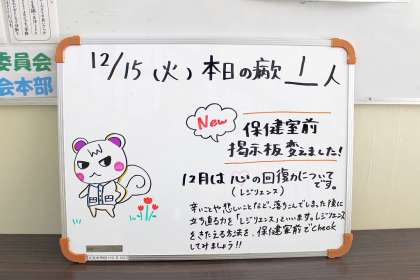 委員会
会本部
12/15(火) 本日の病欠 1 人
New
保健室前
掲示板変えました!
12月は心の回復力について
(レジリエンス) です。
辛いことや悲しいことなど、落ちこんでしまった後に
立ち直る力を「レジリエンス」といいます。レジリエンス
をきたえる方法を、保健室前でcheck
してみましょう!!